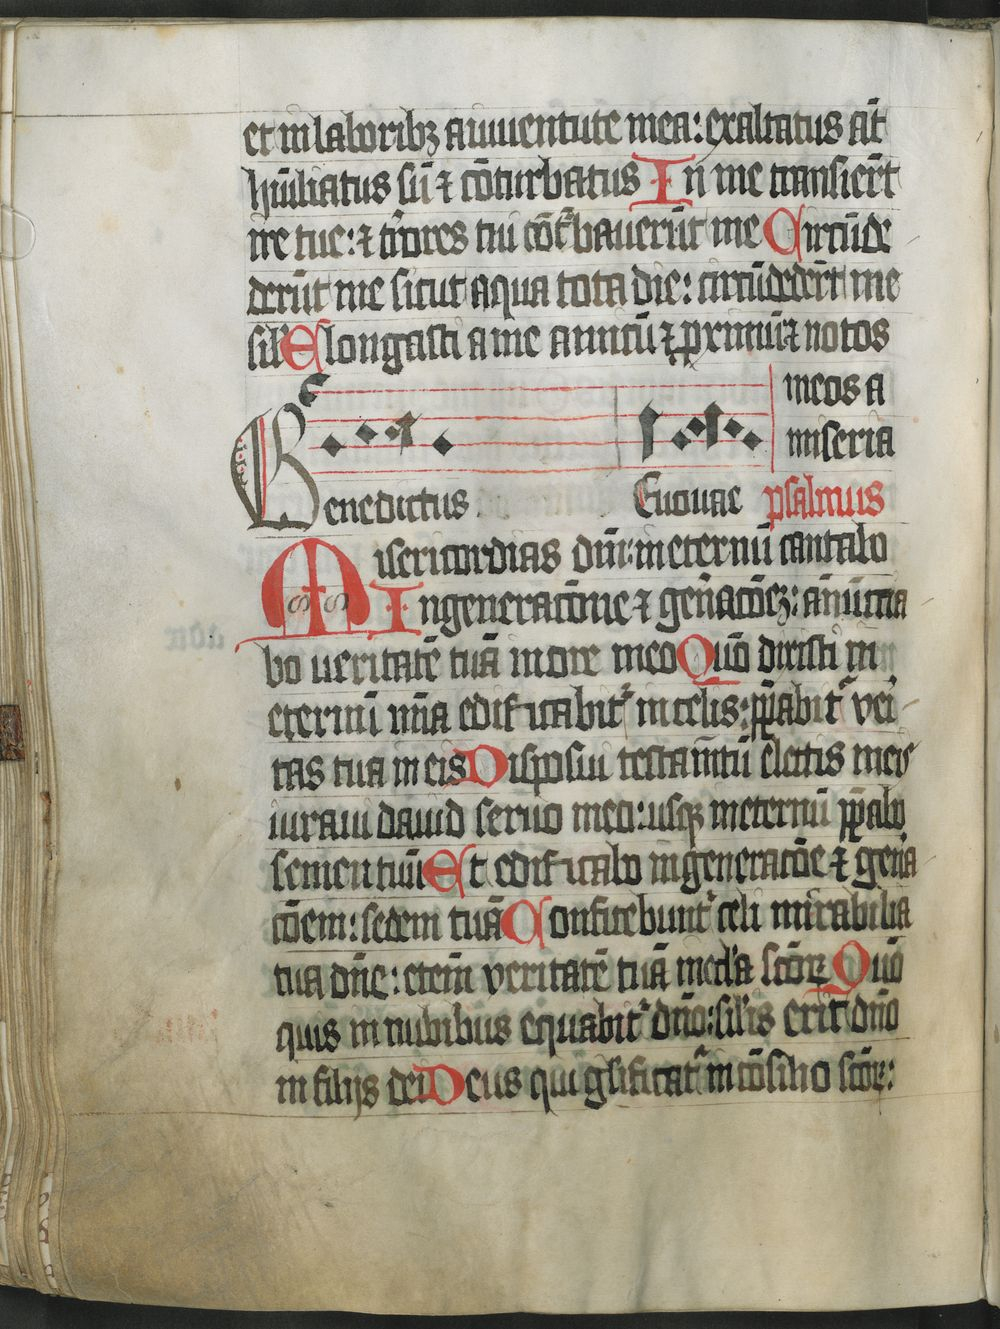 et in laboribꝫ a iuuentute mea: exaltatus aūt
hūiliatus sū ⁊ cōturbatus In me transierūt
ire tue: ⁊ t̾rores tui cōt̾bauerūt me Circūde
derūt me sicut aqua tota die: circūdedert̄ me
sil̾ Elongasti a me amicū ⁊ ꝓximū ⁊ notos
meos a
miseria
Benedictus Euouae psalmus
Misericordias dn̄i: in eternū cantabo
In generatōne ⁊ gen̄atōeꝫ: ānūtia
bo veritatē tuā in ore meo Qūo dixisti in
eternū mīa edificabit̾ in celis: p̄pabit̾ vei
tas tua in eis Disposui testam̄tū electis meis
iuraui dauid seruo meo: usqꝫ in eternū p̄pabo
semen tuū Et edificabo in generatōe ⁊ gen̄a
tōem: sedem tuā Confitebunt̾ celi mirabilia
tua dn̄e: etem̄ veritatē tuā in eccl̾a sc̄oꝝ Qūo
quis in nubibus equabit̾ dn̄o: sil̾is erit dn̄o
in filijs dei Deus qui gl̾ificat̾ in cōsilio sc̄oꝝ: